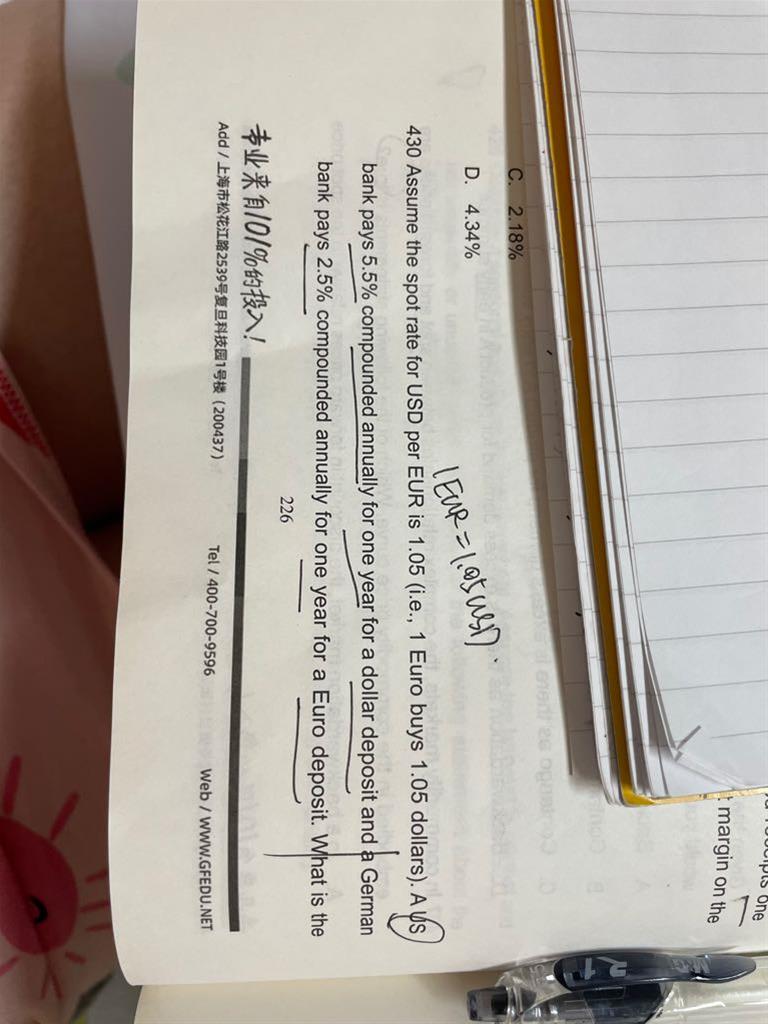 C. 2.18%
D. 4.34%
1 EUR = 1.05 USD.
430 Assume the spot rate for USD per EUR is 1.05 (i.e., 1 Euro buys 1.05 dollars). A US
bank pays 5.5% compounded annually for one year for a dollar deposit and a German
bank pays 2.5% compounded annually for one year for a Euro deposit. What is the
226
专业来自101%的投入!
Add / 上海市松花江路2539号复旦科技园1号楼 (200437) Tel / 400-700-9596 Web / WWW.GFEDU.NET
one
margin on the